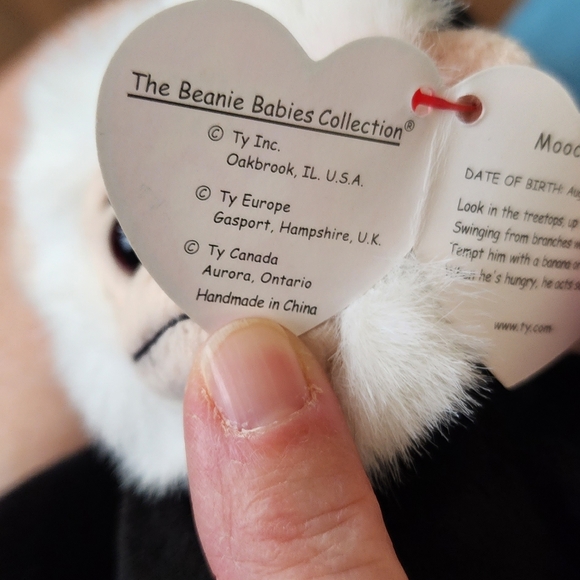 The Beanie Babies Collection®
© Ty Inc.
Oakbrook, IL. U.S.A.
© Ty Europe
Gasport, Hampshire, U.K.
© Ty Canada
Aurora, Ontario
Handmade in China
Mooc
DATE OF BIRTH: Aug
Look in the treetops, up
Swinging from branches
Tempt him with a banana
he's hungry, he acts
www.ty.com